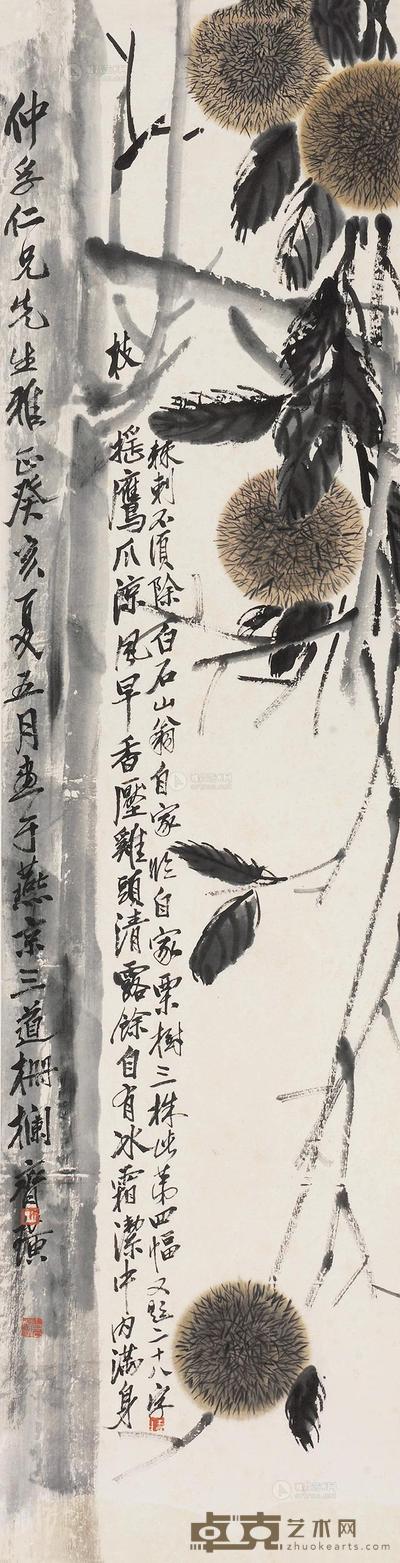 枝
搖鷹爪涼風早香壓雞頭清露餘自有冰霜潔中內滿身
棘刺不須除白石山翁自家臨自家栗樹三株此第四幅又題二十八字
仲孚仁兄先生雅正癸亥夏五月畫于燕京三道柵欄齊璜
卓克艺术网
zhuokearts.com